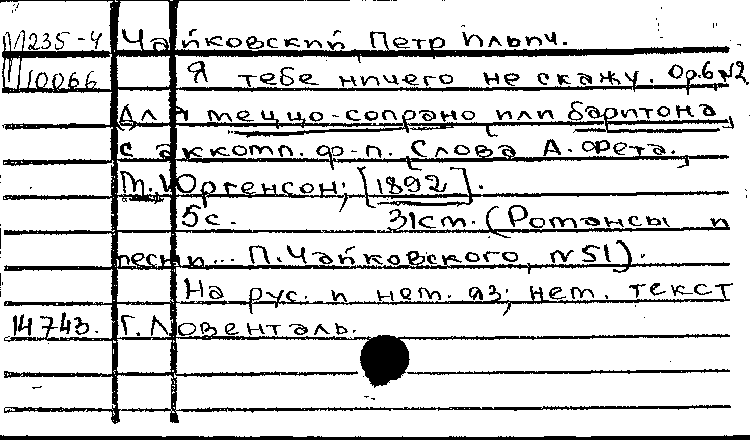 М235-4 Чайковский, Петр Ильич.
10066 Я тебе ничего не скажу. Op.6 №2
Для меццо-сопрано [или баритона]
с аккомп. ф-п. [Слова А. Фета.]
М., Юргенсон; [1892].
5с. 31см. (Романсы и
песни... П. Чайковского, №51).
На рус. и нем. яз; нем. текст
14743. Г. Ловенталь.